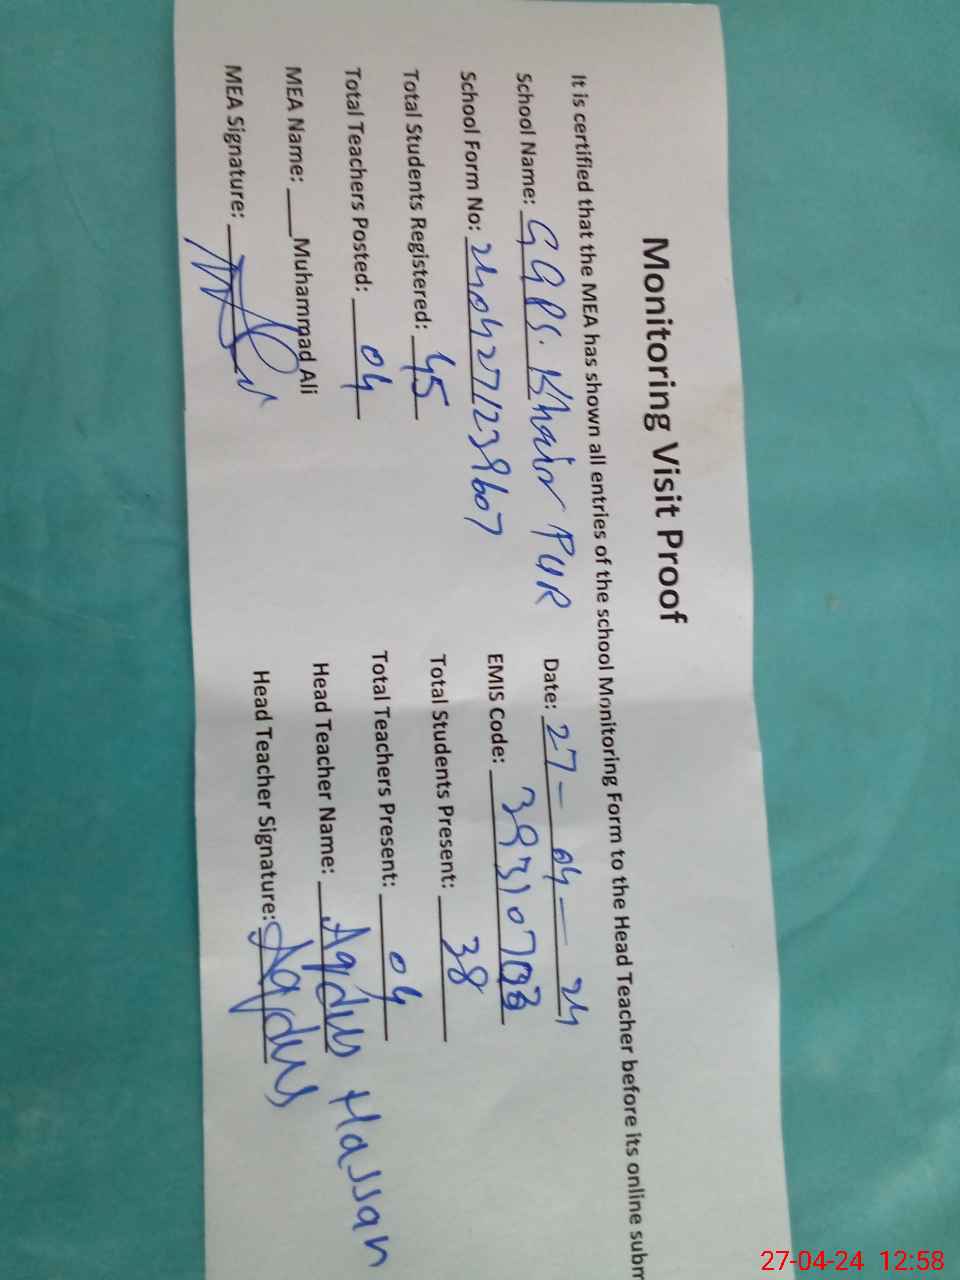 Monitoring Visit Proof
It is certified that the MEA has shown all entries of the school Monitoring Form to the Head Teacher before its online subm
School Name: GGPS. Khair PUR Date: 27-04-24
School Form No: 2404271239607 EMIS Code:
Total Students Registered: 45 Total Students Present: 38
Total Teachers Posted: 04 Total Teachers Present: 04
MEA Name: Muhammad Ali Head Teacher Name: Hassan
MEA Signature: Head Teacher Signature:
27-04-24 12:58